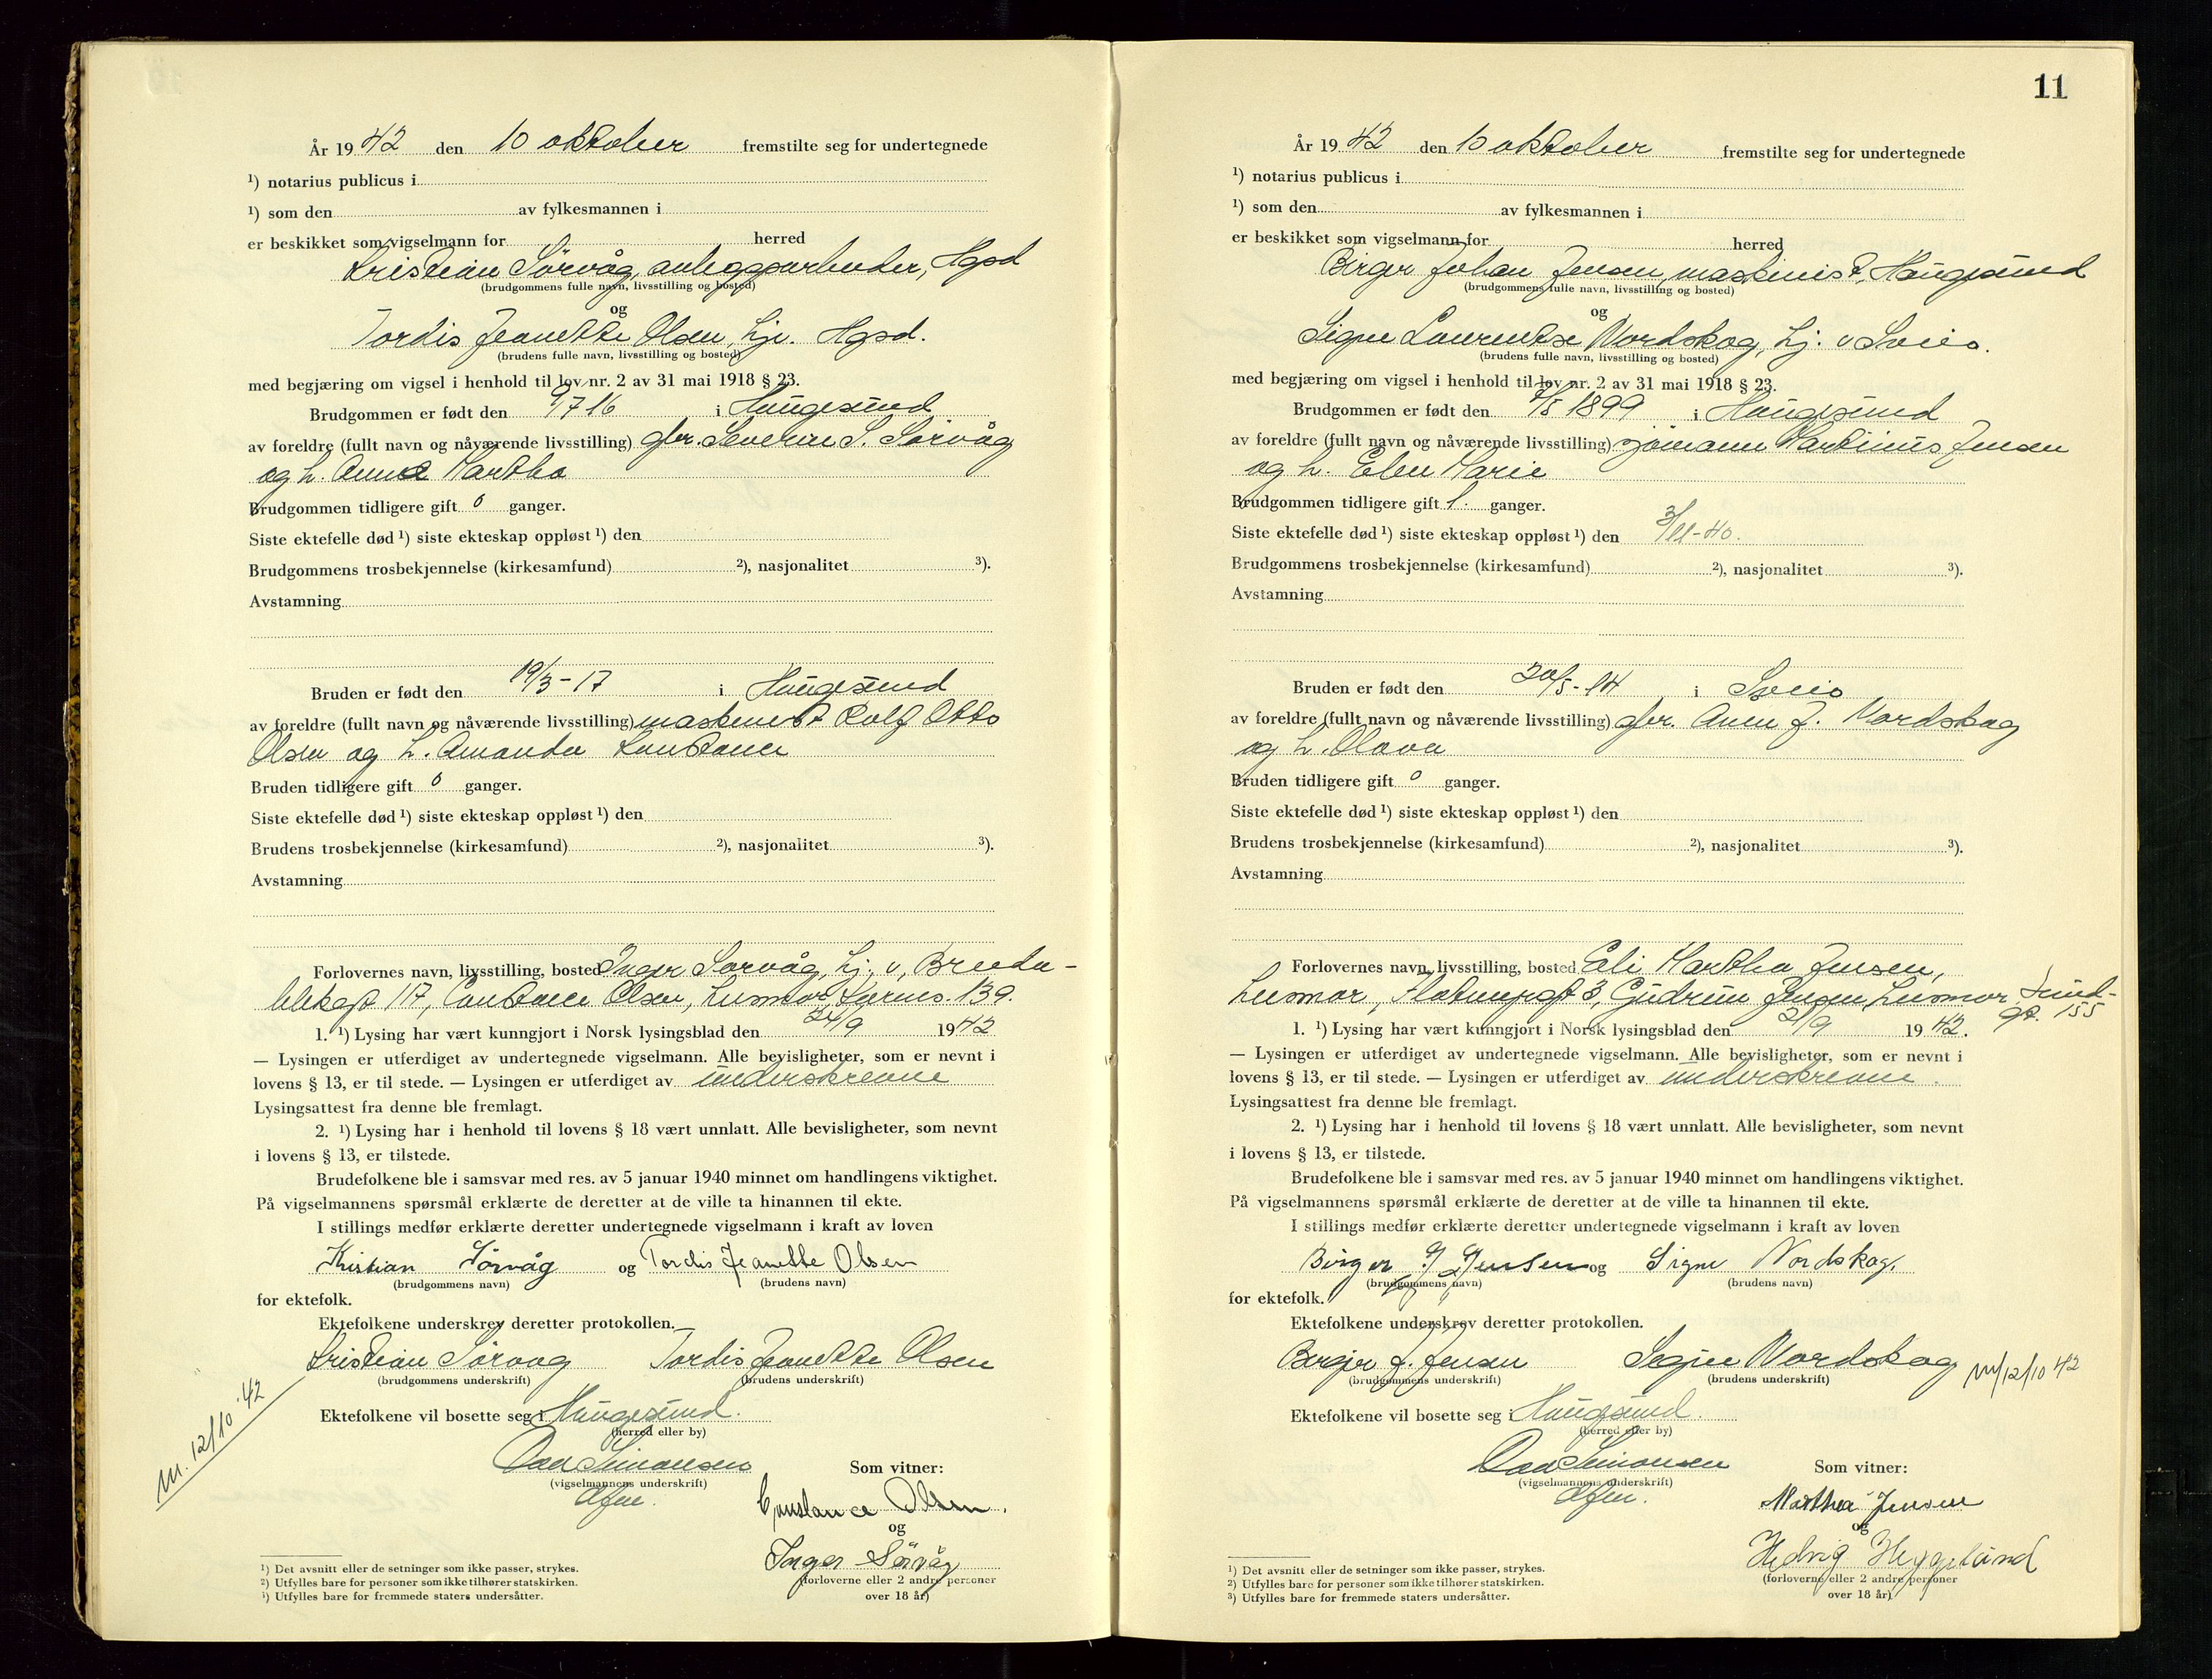 År 1942 den 10 oktober fremstilte seg for undertegnede
¹) notarius publicus i
¹) som den av fylkesmannen i
er beskikket som vigselmann for herred
Kristian Sörvåg, anleggsarbeider, Hgsd
(brudgommens fulle navn, livsstilling og bosted)
og
Tordis Jeanette Olsen, hj. Hgsd.
(brudens fulle navn, livsstilling og bosted)
med begjæring om vigsel i henhold til lov nr. 2 av 31 mai 1918 § 23.
Brudgommen er født den 9/7 16 i Haugesund
av foreldre (fullt navn og nåværende livsstilling) gbr. Severin S. Sörvåg
og h. Anna Martha
Brudgommen tidligere gift 0 ganger.
Siste ektefelle død ¹) siste ekteskap oppløst ¹) den
Brudgommens trosbekjennelse (kirkesamfund) ²), nasjonalitet ³).
Avstamning
Bruden er født den 19/3-17 i Haugesund
av foreldre (fullt navn og nåværende livsstilling) maskinist Rolf Otto
Olsen og h. Amanda Constance
Bruden tidligere gift 0 ganger.
Siste ektefelle død ¹) siste ekteskap oppløst ¹) den
Brudens trosbekjennelse (kirkesamfund) ²), nasjonalitet ³).
Avstamning
Forlovernes navn, livsstilling, bosted Inger Sørvåg, hj. v, Breida-
blikgt 117, Constance Olsen, husmor, 139.
1. ¹) Lysing har vært kunngjort i Norsk lysingsblad den 24/9 1942
— Lysingen er utferdiget av undertegnede vigselmann. Alle bevisligheter, som er nevnt i
lovens § 13, er til stede. — Lysingen er utferdiget av underskrevne
Lysingsattest fra denne ble fremlagt.
2. ¹) Lysing har i henhold til lovens § 18 vært unnlatt. Alle bevisligheter, som nevnt
i lovens § 13, er tilstede.
Brudefolkene ble i samsvar med res. av 5 januar 1940 minnet om handlingens viktighet.
På vigselmannens spørsmål erklærte de deretter at de ville ta hinannen til ekte.
I stillings medfør erklærte deretter undertegnede vigselmann i kraft av loven
Kristian Sörvåg og Tordis Jeanette Olsen
(brudgommens navn) (brudens navn)
for ektefolk.
Ektefolkene underskrev deretter protokollen.
Kristian Sörvåg Tordis Jeanette Olsen
(brudgommens underskrift) (brudens underskrift)
m. 12/10 '42
Ektefolkene vil bosette seg i Haugesund.
(herred eller by)
Simonsen Som vitner:
(vigselmannens underskrift)
Constance Olsen.
og
Inger Sörvåg
(forloverne eller 2 andre personer
over 18 år)
¹) Det avsnitt eller de setninger som ikke passer, strykes.
²) Utfylles bare for personer som ikke tilhører statskirken.
³) Utfylles bare for fremmede staters undersåtter.
11
År 1942 den 10 oktober fremstilte seg for undertegnede
¹) notarius publicus i
¹) som den av fylkesmannen i
er beskikket som vigselmann for herred
Birger Johan Jensen, maskinist, Haugesund
(brudgommens fulle navn, livsstilling og bosted)
og
Signe Laurentse Nordskog, hj. v Sveio.
(brudens fulle navn, livsstilling og bosted)
med begjæring om vigsel i henhold til lov nr. 2 av 31 mai 1918 § 23.
Brudgommen er født den 1899 i Haugesund
av foreldre (fullt navn og nåværende livsstilling) sjömann Martinius Jensen
og h. Elen Marie
Brudgommen tidligere gift 1. ganger.
Siste ektefelle død ¹) siste ekteskap oppløst ¹) den 3/11-40.
Brudgommens trosbekjennelse (kirkesamfund) ²), nasjonalitet ³).
Avstamning
Bruden er født den 20/5-14 i Sveio
av foreldre (fullt navn og nåværende livsstilling) gbr. J. Nordskog
og h. Olava
Bruden tidligere gift 0 ganger.
Siste ektefelle død ¹) siste ekteskap oppløst ¹) den
Brudens trosbekjennelse (kirkesamfund) ²), nasjonalitet ³).
Avstamning
Forlovernes navn, livsstilling, bosted Eli Martha Jensen,
husmor, 3, Gudrun Jensen, husmor, Sund-
gt. 155
1. ¹) Lysing har vært kunngjort i Norsk lysingsblad den 21/9 1942.
— Lysingen er utferdiget av undertegnede vigselmann. Alle bevisligheter, som er nevnt i
lovens § 13, er til stede. — Lysingen er utferdiget av underskrevne.
Lysingsattest fra denne ble fremlagt.
2. ¹) Lysing har i henhold til lovens § 18 vært unnlatt. Alle bevisligheter, som nevnt
i lovens § 13, er tilstede.
Brudefolkene ble i samsvar med res. av 5 januar 1940 minnet om handlingens viktighet.
På vigselmannens spørsmål erklærte de deretter at de ville ta hinannen til ekte.
I stillings medfør erklærte deretter undertegnede vigselmann i kraft av loven
Birger J. Jensen og Signe Nordskog.
(brudgommens navn) (brudens navn)
for ektefolk.
Ektefolkene underskrev deretter protokollen.
Birger J. Jensen Signe Nordskog m/12/10 42
(brudgommens underskrift) (brudens underskrift)
Ektefolkene vil bosette seg i Haugesund.
(herred eller by)
Simonsen Som vitner:
(vigselmannens underskrift)
Martha Jensen
og
Hedvig Heggelund
(forloverne eller 2 andre personer
over 18 år)
¹) Det avsnitt eller de setninger som ikke passer, strykes.
²) Utfylles bare for personer som ikke tilhører statskirken.
³) Utfylles bare for fremmede staters undersåtter.